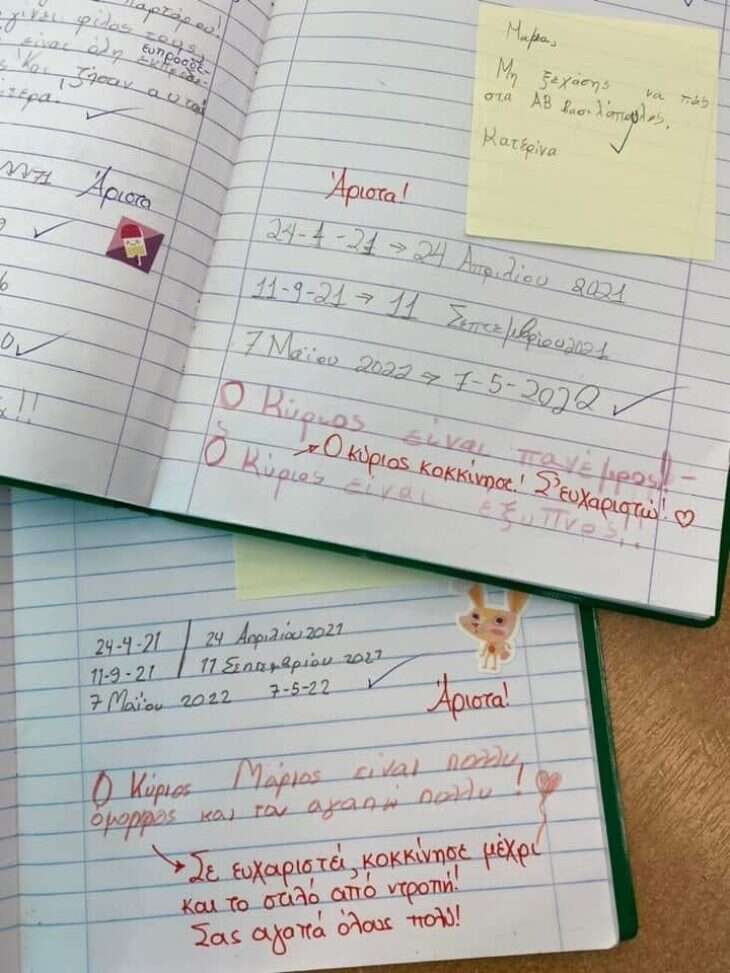 γίνει φίλος τους,
είναι όλη
ευπρόσδε-
αυτά
Άριστα
Μαμά,
Μη ξεχάσης να πας
στα ΑΒ βασιλόπουλος.
Κατερίνα
Άριστα!
24-4-21 → 24 Απριλίου 2021
11-9-21 → 11 Σεπτεμβρίου 2021
7 Μαΐου 2022 → 7-5-2022
Ο Κύριος είναι πανέμορος!
→ Ο κύριος κοκκίνησε! Σ'ευχαριστώ! ♡
Ο Κύριος είναι εξυπνος!!
24-4-21 | 24 Απριλίου 2021
11-9-21 | 11 Σεπτεμβρίου 2021
7 Μαΐου 2022 7-5-22
Άριστα!
Ο Κύριος Μάριος είναι πολλυ
όμορφος και τον αγαπώ πολλυ!
→ Σε ευχαριστεί, κοκκίνησε μέχρι
και το στιλό από ντροπή!
Σας αγαπά όλους πολύ!